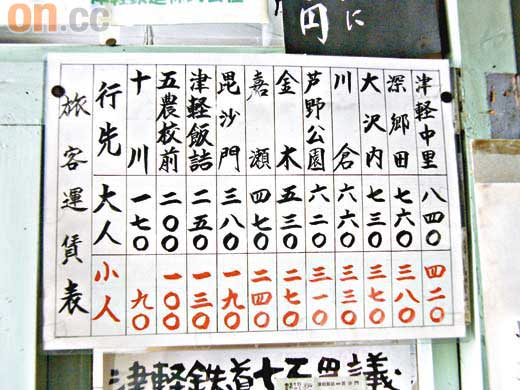 on.cc
に
円
旅客運賃表
行先 大人 小人
十川 一七〇 九〇
五農校前 二〇〇 一〇〇
津軽飯詰 二五〇 一三〇
毘沙門 三八〇 一九〇
嘉瀬 四七〇 二四〇
金木 五三〇 二七〇
芦野公園 六二〇 三一〇
川倉 六六〇 三三〇
大沢内 七三〇 三七〇
深郷田 七六〇 三八〇
津軽中里 八四〇 四二〇
津軽鉄道